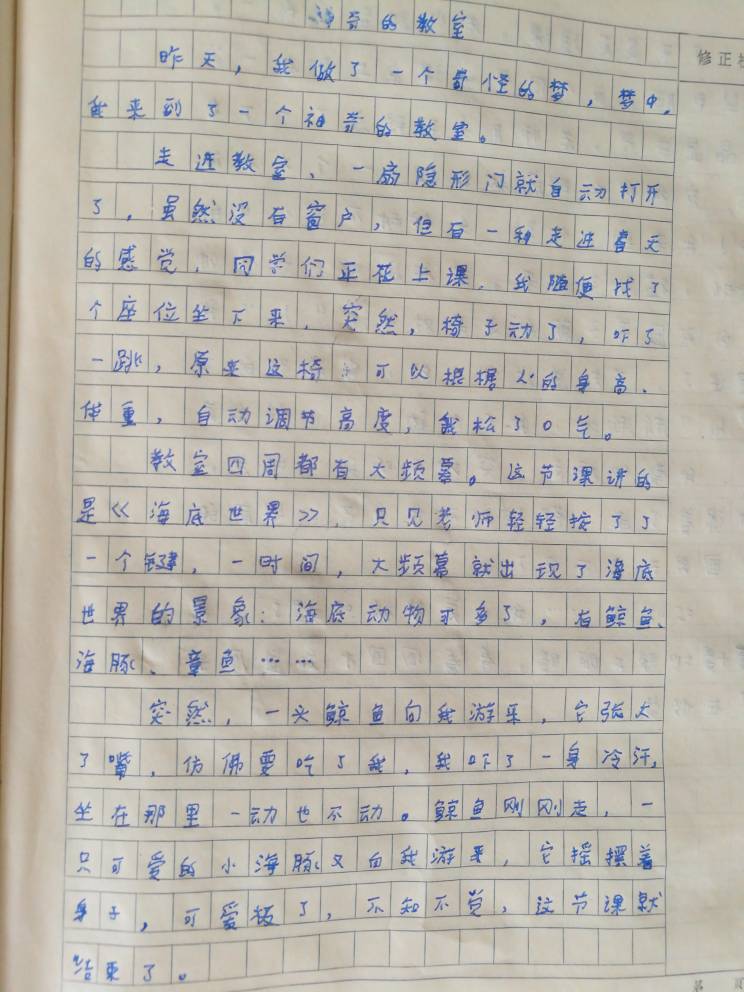 神奇的教室
修正栏
昨天，我做了一个奇怪的梦，梦中，
我来到了一个神奇的教室。
走进教室，一扇隐形门就自动打开
了，虽然没有窗户，但有一种走进春天
的感觉，同学们正在上课，我随便找了
个座位坐下来，突然，椅子动了，吓了
一跳，原来这椅子可以根据人的身高、
体重，自动调节高度，我松了口气。
教室四周都有大频幕。这节课讲的
是《海底世界》，只见老师轻轻按了了
一个键，一时间，大频幕就出现了海底
世界的景象：海底动物可多了，有鲸鱼、
海豚、章鱼……
突然，一头鲸鱼向我游来，它张大
了嘴，仿佛要吃了我，我吓了一身冷汗，
坐在那里一动也不动。鲸鱼刚刚走，一
只可爱的小海豚又向我游来，它摇摆着
身子，可爱极了，不知不觉，这节课就
结束了。
第 页